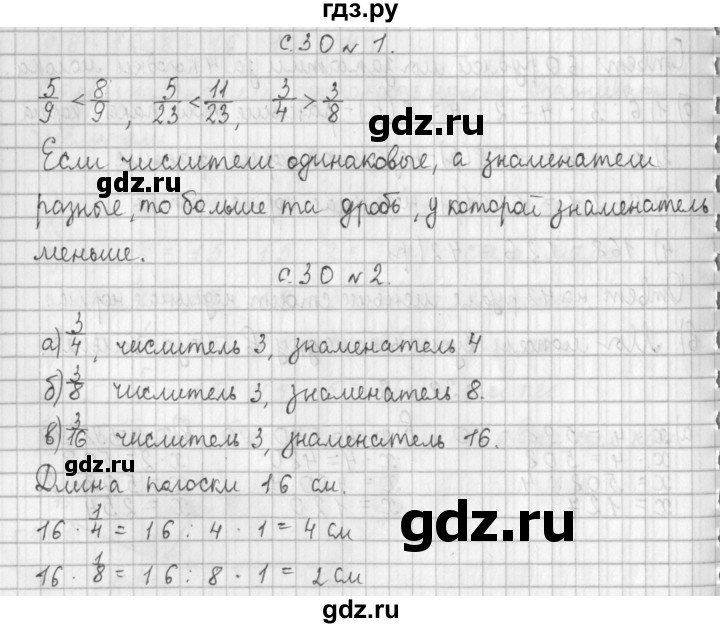 гдз.ру
с.30 № 1.
5/9 < 8/9, 5/23 < 11/23, 3/4 > 3/8
gdz.ru
Если числители одинаковые, а знаменатели
gdz.ru
разные, то больше та дробь, у которой знаменатель
меньше.
с.30 № 2.
а) 3/4, числитель 3, знаменатель 4
gdz.ru
б) 3/8 числитель 3, знаменатель 8.
в) 3/16 числитель 3, знаменатель 16.
gdz.ru
Длина полоски 16 см.
16 · 1/4 = 16 : 4 · 1 = 4 см
gdz.ru
16 · 1/8 = 16 : 8 · 1 = 2 см
gdz.ru